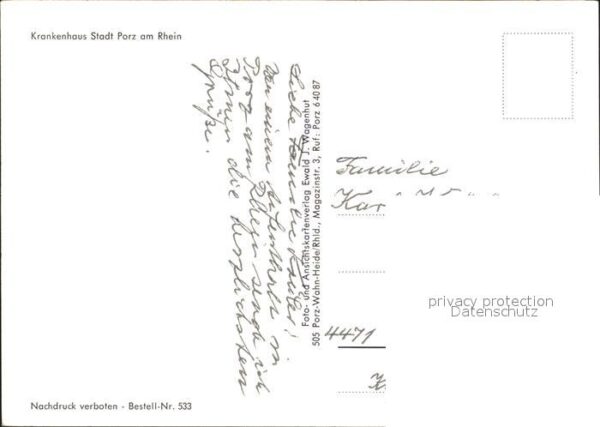 Krankenhaus Stadt Porz am Rhein
Liebe Familie
Von einem Aufenthalt in
Porz am Rhein sende ich
Ihnen die herzlichsten
Grüße.
Foto- und Ansichtskartenverlag Ewald J. Wagenhut
505 Porz-Wahn-Heide/Rhld., Magazinstr. 3, Ruf: Porz 64087
Familie
Kar
4471
privacy protection
Datenschutz
Nachdruck verboten - Bestell-Nr. 533